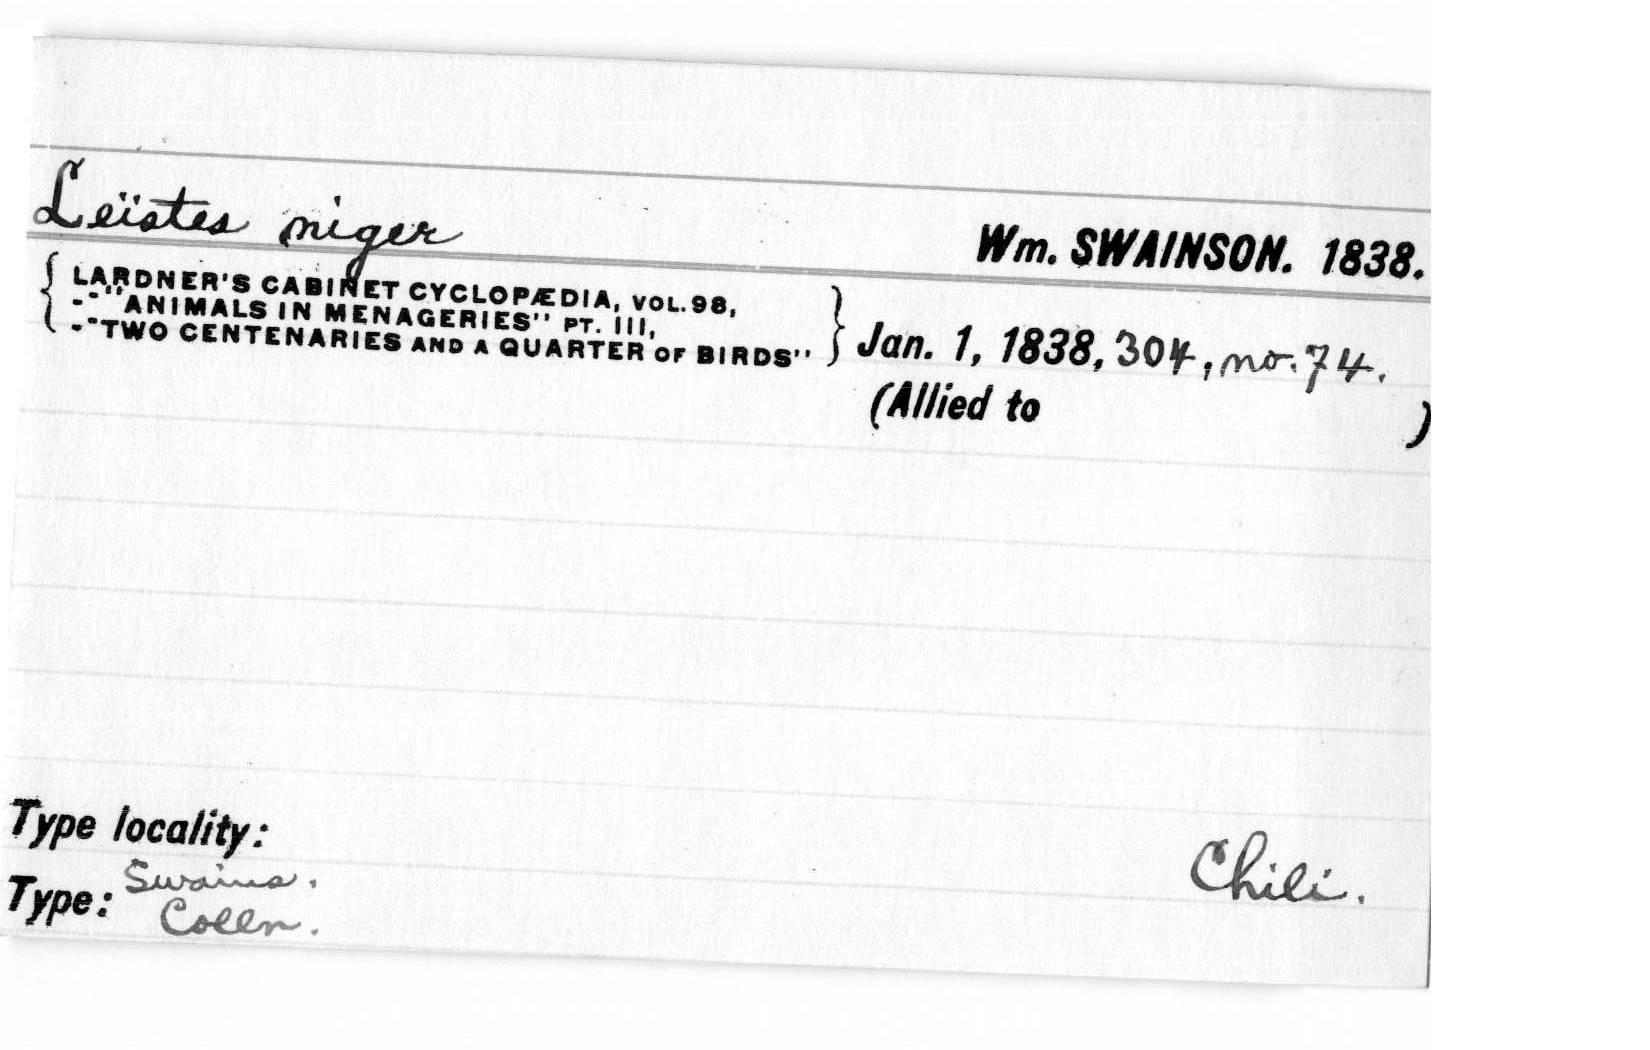 Leïstes niger
Wm. SWAINSON. 1838.
{ LARDNER'S CABINET CYCLOPÆDIA, VOL. 98,
-"ANIMALS IN MENAGERIES" PT. III,
-"TWO CENTENARIES AND A QUARTER OF BIRDS" } Jan. 1, 1838, 304, no. 74.
(Allied to )
Type locality:
Chili.
Type: Swains.
Colln.